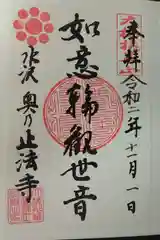 奉拝 令和二年十一月一日
如意輪觀世音
水沢 奥乃 正法寺